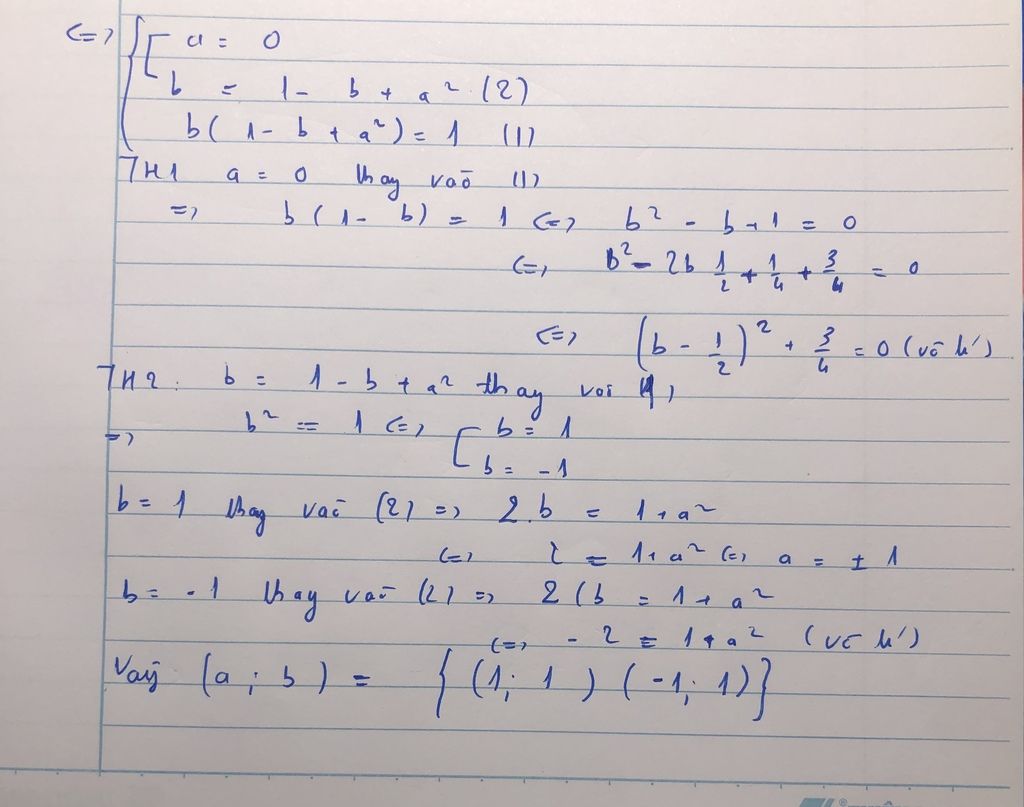 <=> { [ a = 0
b = 1 - b + a² (2)
b(1 - b + a²) = 1 (1)
TH1 a = 0 thay vaò (1)
=> b(1 - b) = 1 <=> b² - b + 1 = 0
<=> b² - 2b 1/2 + 1/4 + 3/4 = 0
<=> (b - 1/2)² + 3/4 = 0 (vô lí)
TH2: b = 1 - b + a² thay vaò (1)
=> b² = 1 <=> [ b = 1
b = -1
b = 1 thay vaò (2) => 2.b = 1 + a²
<=> 2 = 1 + a² <=> a = ± 1
b = -1 thay vaò (2) => 2(b = 1 + a²
<=> -2 = 1 + a² (vô lí)
Vậy (a ; b) = { (1; 1) (-1; 1)}